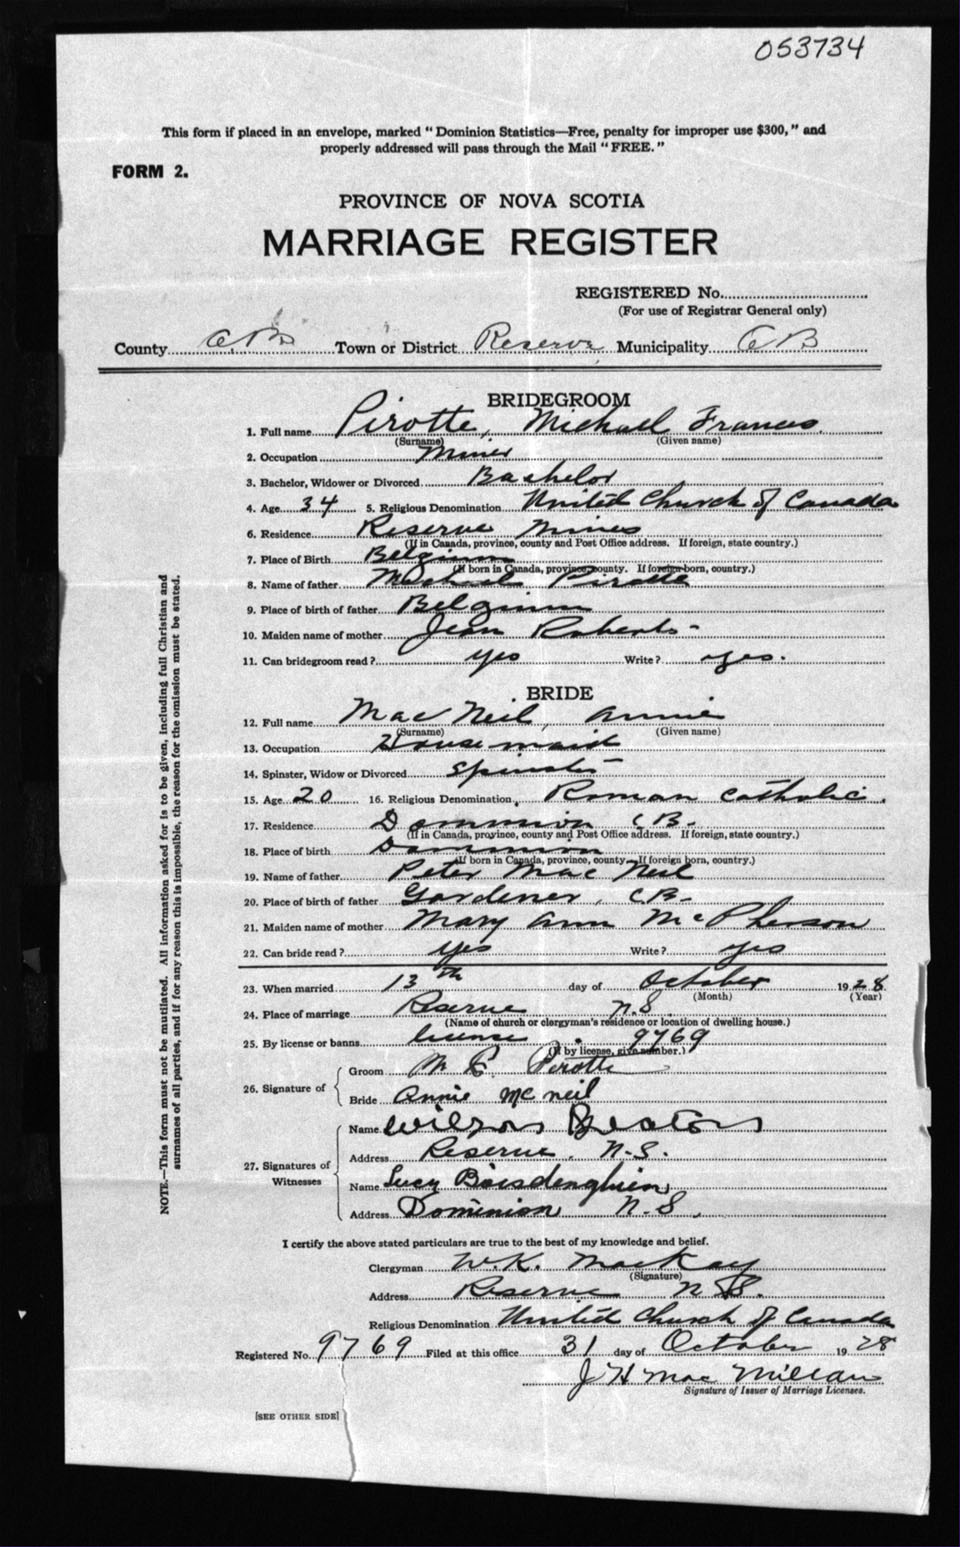 053734
This form if placed in an envelope, marked "Dominion Statistics—Free, penalty for improper use $300," and
properly addressed will pass through the Mail "FREE."
FORM 2.
PROVINCE OF NOVA SCOTIA
MARRIAGE REGISTER
REGISTERED No.
(For use of Registrar General only)
County C.B. Town or District Reserve Municipality CB
BRIDEGROOM
1. Full name Pirotte, Michael Francis
(Surname) (Given name)
2. Occupation Miner
3. Bachelor, Widower or Divorced Bachelor
4. Age 34 5. Religious Denomination United Church of Canada
6. Residence Reserve Mines
(If in Canada, province, county and Post Office address. If foreign, state country.)
7. Place of Birth Belgium
(If born in Canada, province, county. If foreign born, country.)
8. Name of father Michael Pirotte
9. Place of birth of father Belgium
10. Maiden name of mother Jean Roberts
11. Can bridegroom read? yes Write? yes.
BRIDE
12. Full name MacNeil, Annie
(Surname) (Given name)
13. Occupation Housemaid
14. Spinster, Widow or Divorced Spinster
15. Age 20 16. Religious Denomination Roman Catholic.
17. Residence Dominion C.B.
(If in Canada, province, county and Post Office address. If foreign, state country.)
18. Place of birth Dominion
(If born in Canada, province, county. If foreign born, country.)
19. Name of father Peter MacNeil
20. Place of birth of father Gardener, C.B.
21. Maiden name of mother Mary Ann McPherson
22. Can bride read? yes Write? yes
23. When married 13th day of October 1928
(Month) (Year)
24. Place of marriage Reserve N.S.
(Name of church or clergyman's residence or location of dwelling house.)
25. By license or banns license 9769
(If by license, give number.)
26. Signature of
Groom M F Pirotte
Bride Annie McNeil
27. Signatures of Witnesses
Name Wilson Beaton
Address Reserve, N.S.
Name Lucy Boisdenghien
Address Dominion N.S.
I certify the above stated particulars are true to the best of my knowledge and belief.
Clergyman W.K. MacKay
(Signature)
Address Reserve N.S.
Religious Denomination United Church of Canada
Registered No. 9769 Filed at this office 31 day of October 1928
J H MacMillan
Signature of Issuer of Marriage Licenses.
[SEE OTHER SIDE]
NOTE.—This form must not be mutilated. All information asked for is to be given, including full Christian and
surnames of all parties, and if for any reason this is impossible, the reason for the omission must be stated.